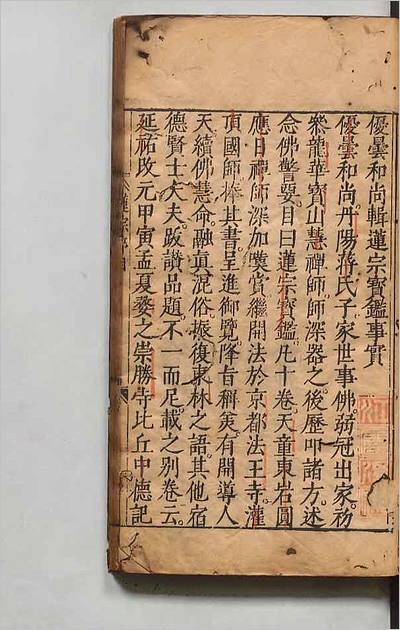 優曇和尚輯蓮宗寶鑑事實
優曇和尚丹陽蔣氏子家世事佛弱冠出家初
叅龍華寶山慧禪師師深器之後歷叩諸方述
念佛警要目曰蓮宗寶鑑凡十卷天童東岩圓
應日禪師深加嘆賞繼開法於京都法王寺灌
頂國師捧其書呈進御覽降旨稱羙有開導人
天續佛慧命融眞混俗擬復東林之語其他宿
德賢士大夫䟦讃品題不一而足載之别卷云
延祐改元甲寅孟夏婺之崇勝寺比丘中德記